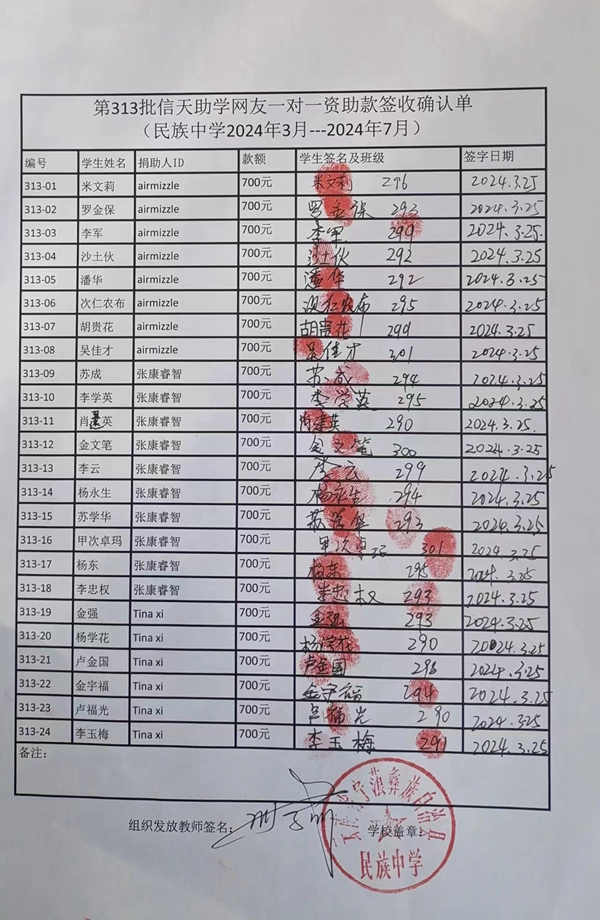 第313批信天助学网友一对一资助款签收确认单
（民族中学2024年3月---2024年7月）
编号 学生姓名 捐助人ID 款额 学生签名及班级 签字日期
313-01 米文莉 airmizzle 700元 米文莉 296 2024.3.25
313-02 罗金保 airmizzle 700元 罗金保 293 2024.3.25
313-03 李军 airmizzle 700元 李军 299 2024.3.25.
313-04 沙土伙 airmizzle 700元 沙土伙 292 2024.3.25
313-05 潘华 airmizzle 700元 潘华 292 2024.3.25
313-06 次仁农布 airmizzle 700元 次仁农布 295 2024.3.25
313-07 胡贵花 airmizzle 700元 胡贵花 299 2024.3.25
313-08 吴佳才 airmizzle 700元 吴佳才 301 2024.3.25
313-09 苏成 张康睿智 700元 苏成 294 2024.3.25
313-10 李学英 张康睿智 700元 李学英 295 2024.3.25
313-11 肖建英 张康睿智 700元 肖建英 290 2024.3.25.
313-12 金文笔 张康睿智 700元 金文笔 300 2024.3.25
313-13 李云 张康睿智 700元 李云 299 2024.3.25
313-14 杨永生 张康睿智 700元 杨永生 294 2024.3.25
313-15 苏学华 张康睿智 700元 苏学华 293 2024.3.25
313-16 甲次卓玛 张康睿智 700元 甲次卓玛 301 2024.3.25
313-17 杨东 张康睿智 700元 杨东 295 2024.3.25
313-18 李忠权 张康睿智 700元 李忠权 293 2024.3.25
313-19 金强 Tina xi 700元 金强 293 2024.3.25
313-20 杨学花 Tina xi 700元 杨学花 290 2024.3.25
313-21 卢金国 Tina xi 700元 卢金国 298 2024.3.25
313-22 金宇福 Tina xi 700元 金宇福 294 2024.3.25
313-23 卢福光 Tina xi 700元 卢福光 290 2024.3.25
313-24 李玉梅 Tina xi 700元 李玉梅 291 2024.3.25
备注：
组织发放教师签名： 学校盖章：
宁蒗彝族自治县
民族中学